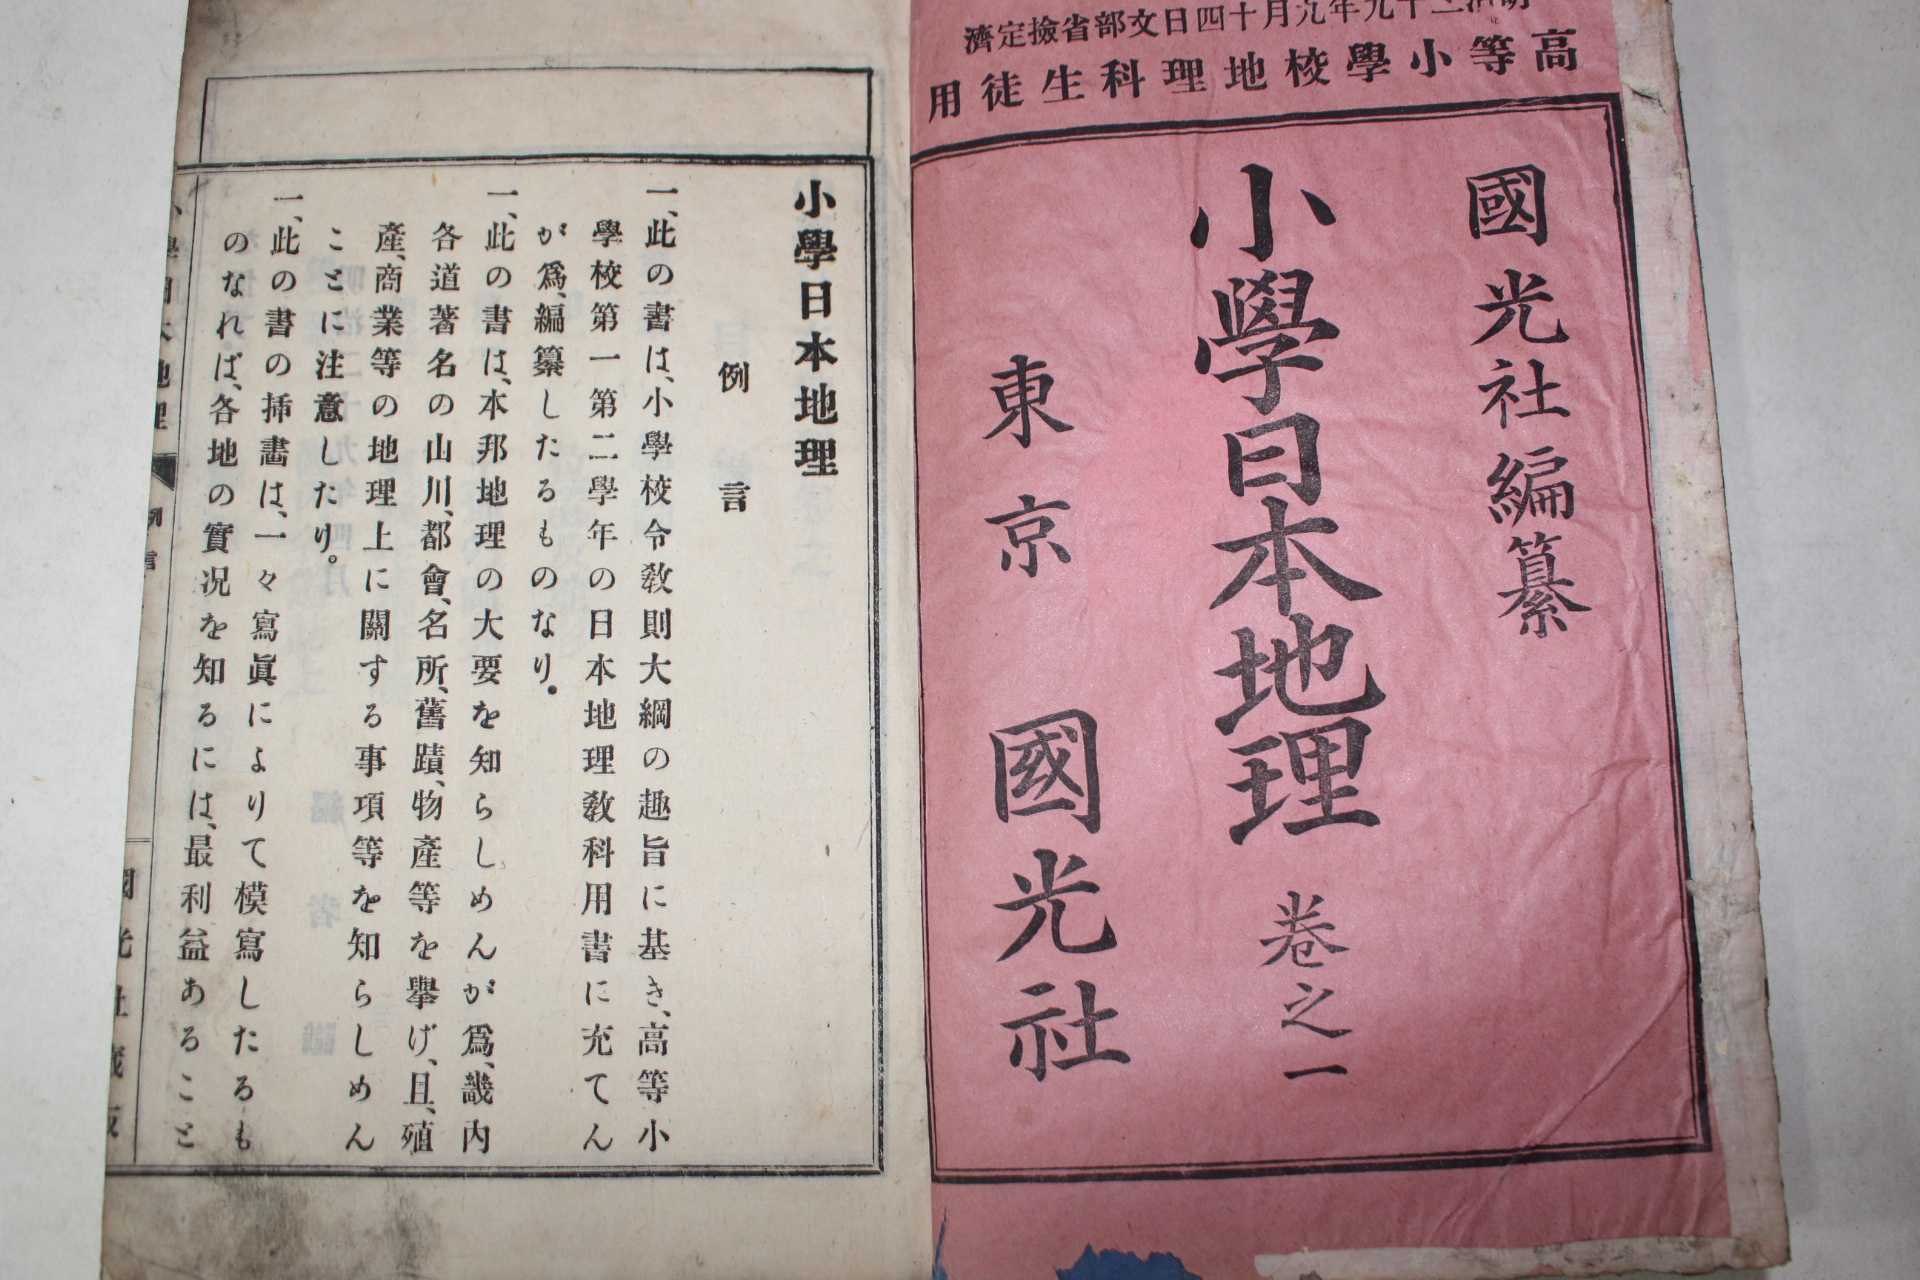 明治二十九年九月十四日文部省撿定濟
高等小學校地理科生徒用
國光社編纂
小學日本地理 卷之一
東京 國光社
小學日本地理
例言
一、此の書は、小學校令敎則大綱の趣旨に基き、高等小
學校第一第二學年の日本地理敎科用書に充てん
が爲、編纂したるものなり。
一、此の書は、本邦地理の大要を知らしめんが爲、畿内
各道著名の山川、都會、名所、舊蹟、物產等を擧げ、且、殖
產、商業等の地理上に關する事項等を知らしめん
ことに注意したり。
一、此の書の挿畵は、一々寫眞によりて模寫したるも
のなれば、各地の實况を知るには、最利益あること
小學日本地理 例言 國光社藏版